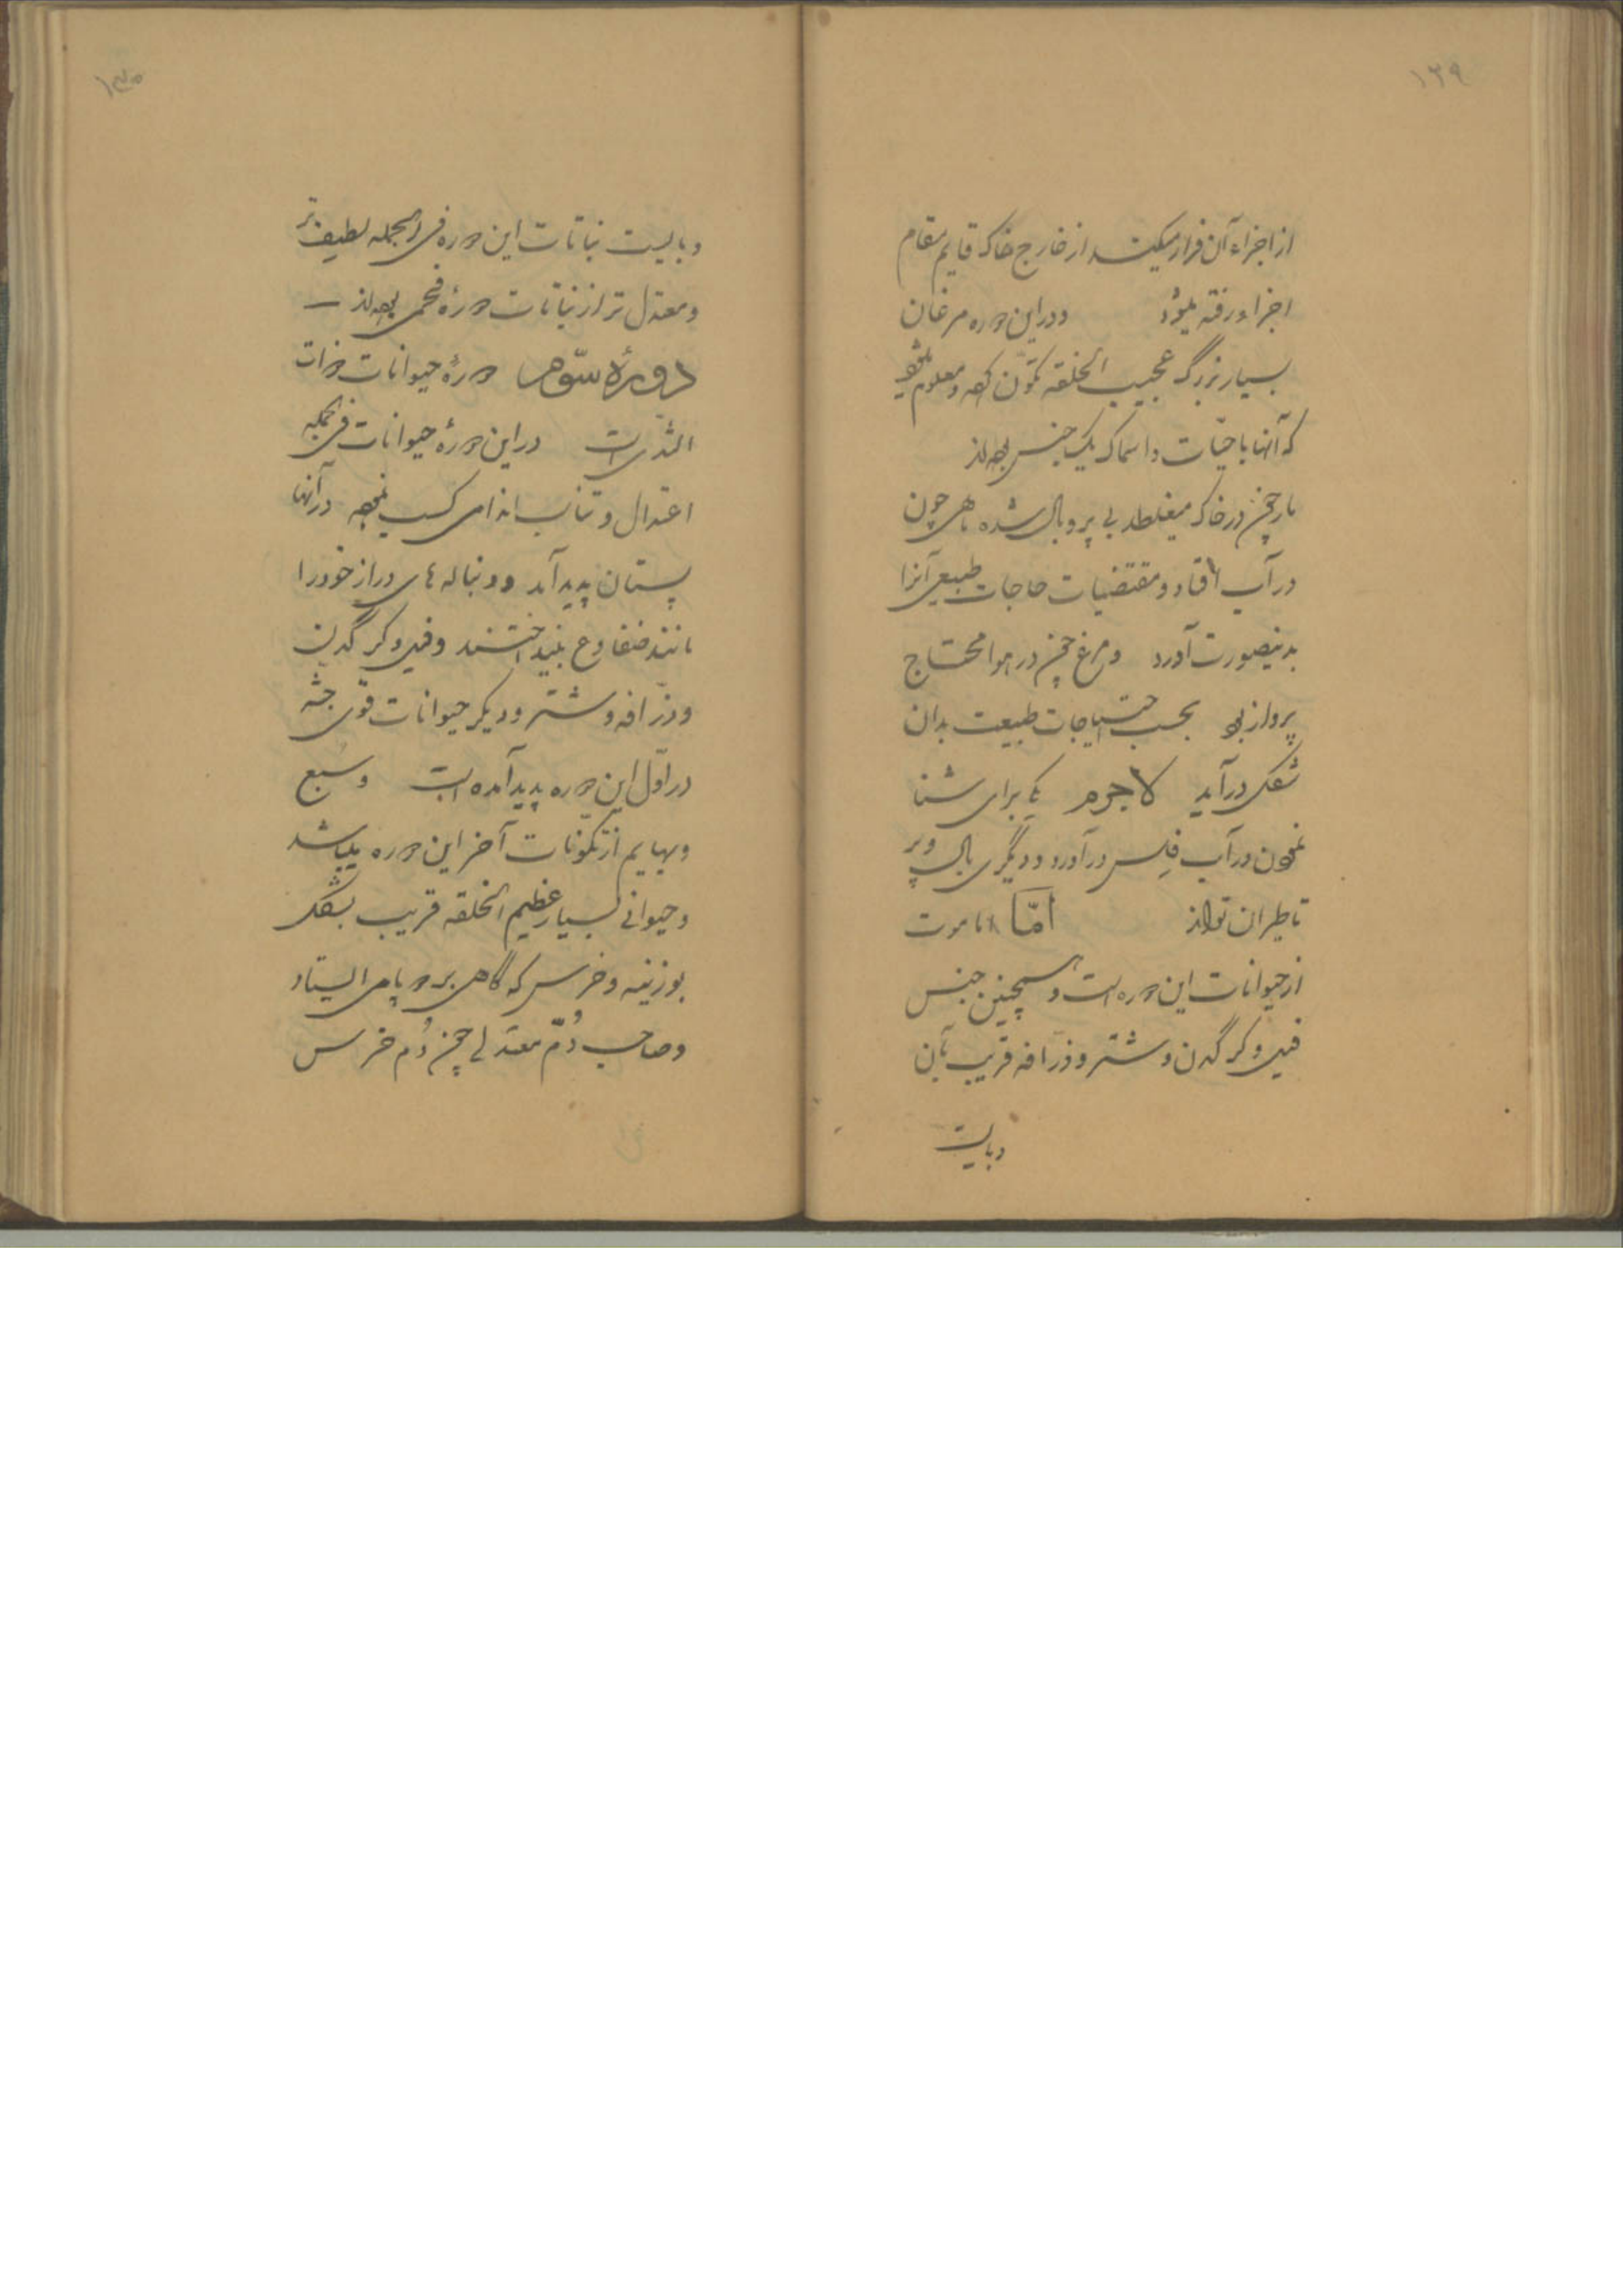 ۱۲۹
از اجزاء آن فرار میکند از خارج خاک قایم مقام
اجزاء رفته میشود ودر این دوره مرغان
بسیار بزرگ عجیب الخلقه تکون کرده و معلوم میشود
که آنها با حیّات و اسماک یک جنس بوده‌اند
مار چون در خاک میغلطد بی پر و بال شده ماهی چون
در آب افتاد و مقتضیات حاجات طبیعی آنرا
بدینصورت آورد و مرغ چون در هوا محتاج
پرواز بود بحسب احتیاجات طبیعت بدان
شکل درآید لاجرم یکی برای شنا
نمودن در آب فلس درآورد و دیگری بال و پر
تا طیران تواند امّا ماموت
از حیوانات این دوره است و همچنین جنس
فیل و کرگدن و شتر و زرافه قریب بآن
وبایست
۱۳۰
وبایست نباتات این دوره فی الجمله لطیف تر
و معتدل تر از نباتات دورهٔ فحمی بوده‌اند
دورهٔ سوّم دورهٔ حیوانات ذوات
الثدی است در این دورهٔ حیوانات فی الجمله
اعتدال و تناسب اندامی کسب نموده در آنها
پستان پدید آمد و دنباله های دراز خود را
مانند ضفادع بینداختند و فیل و کرگدن
و زرّافه و شتر و دیگر حیوانات قوی جثه
در اوّل این دوره پدید آمده است و سبع
و بهایم از تکوّنات آخر این دوره میباشد
و حیوانی بسیار عظیم الخلقه قریب بشکل
بوزینه و خرس که گاهی بر دو پا می ایستاد
و صاحب دُمّ معتدلی چون دُم خرس